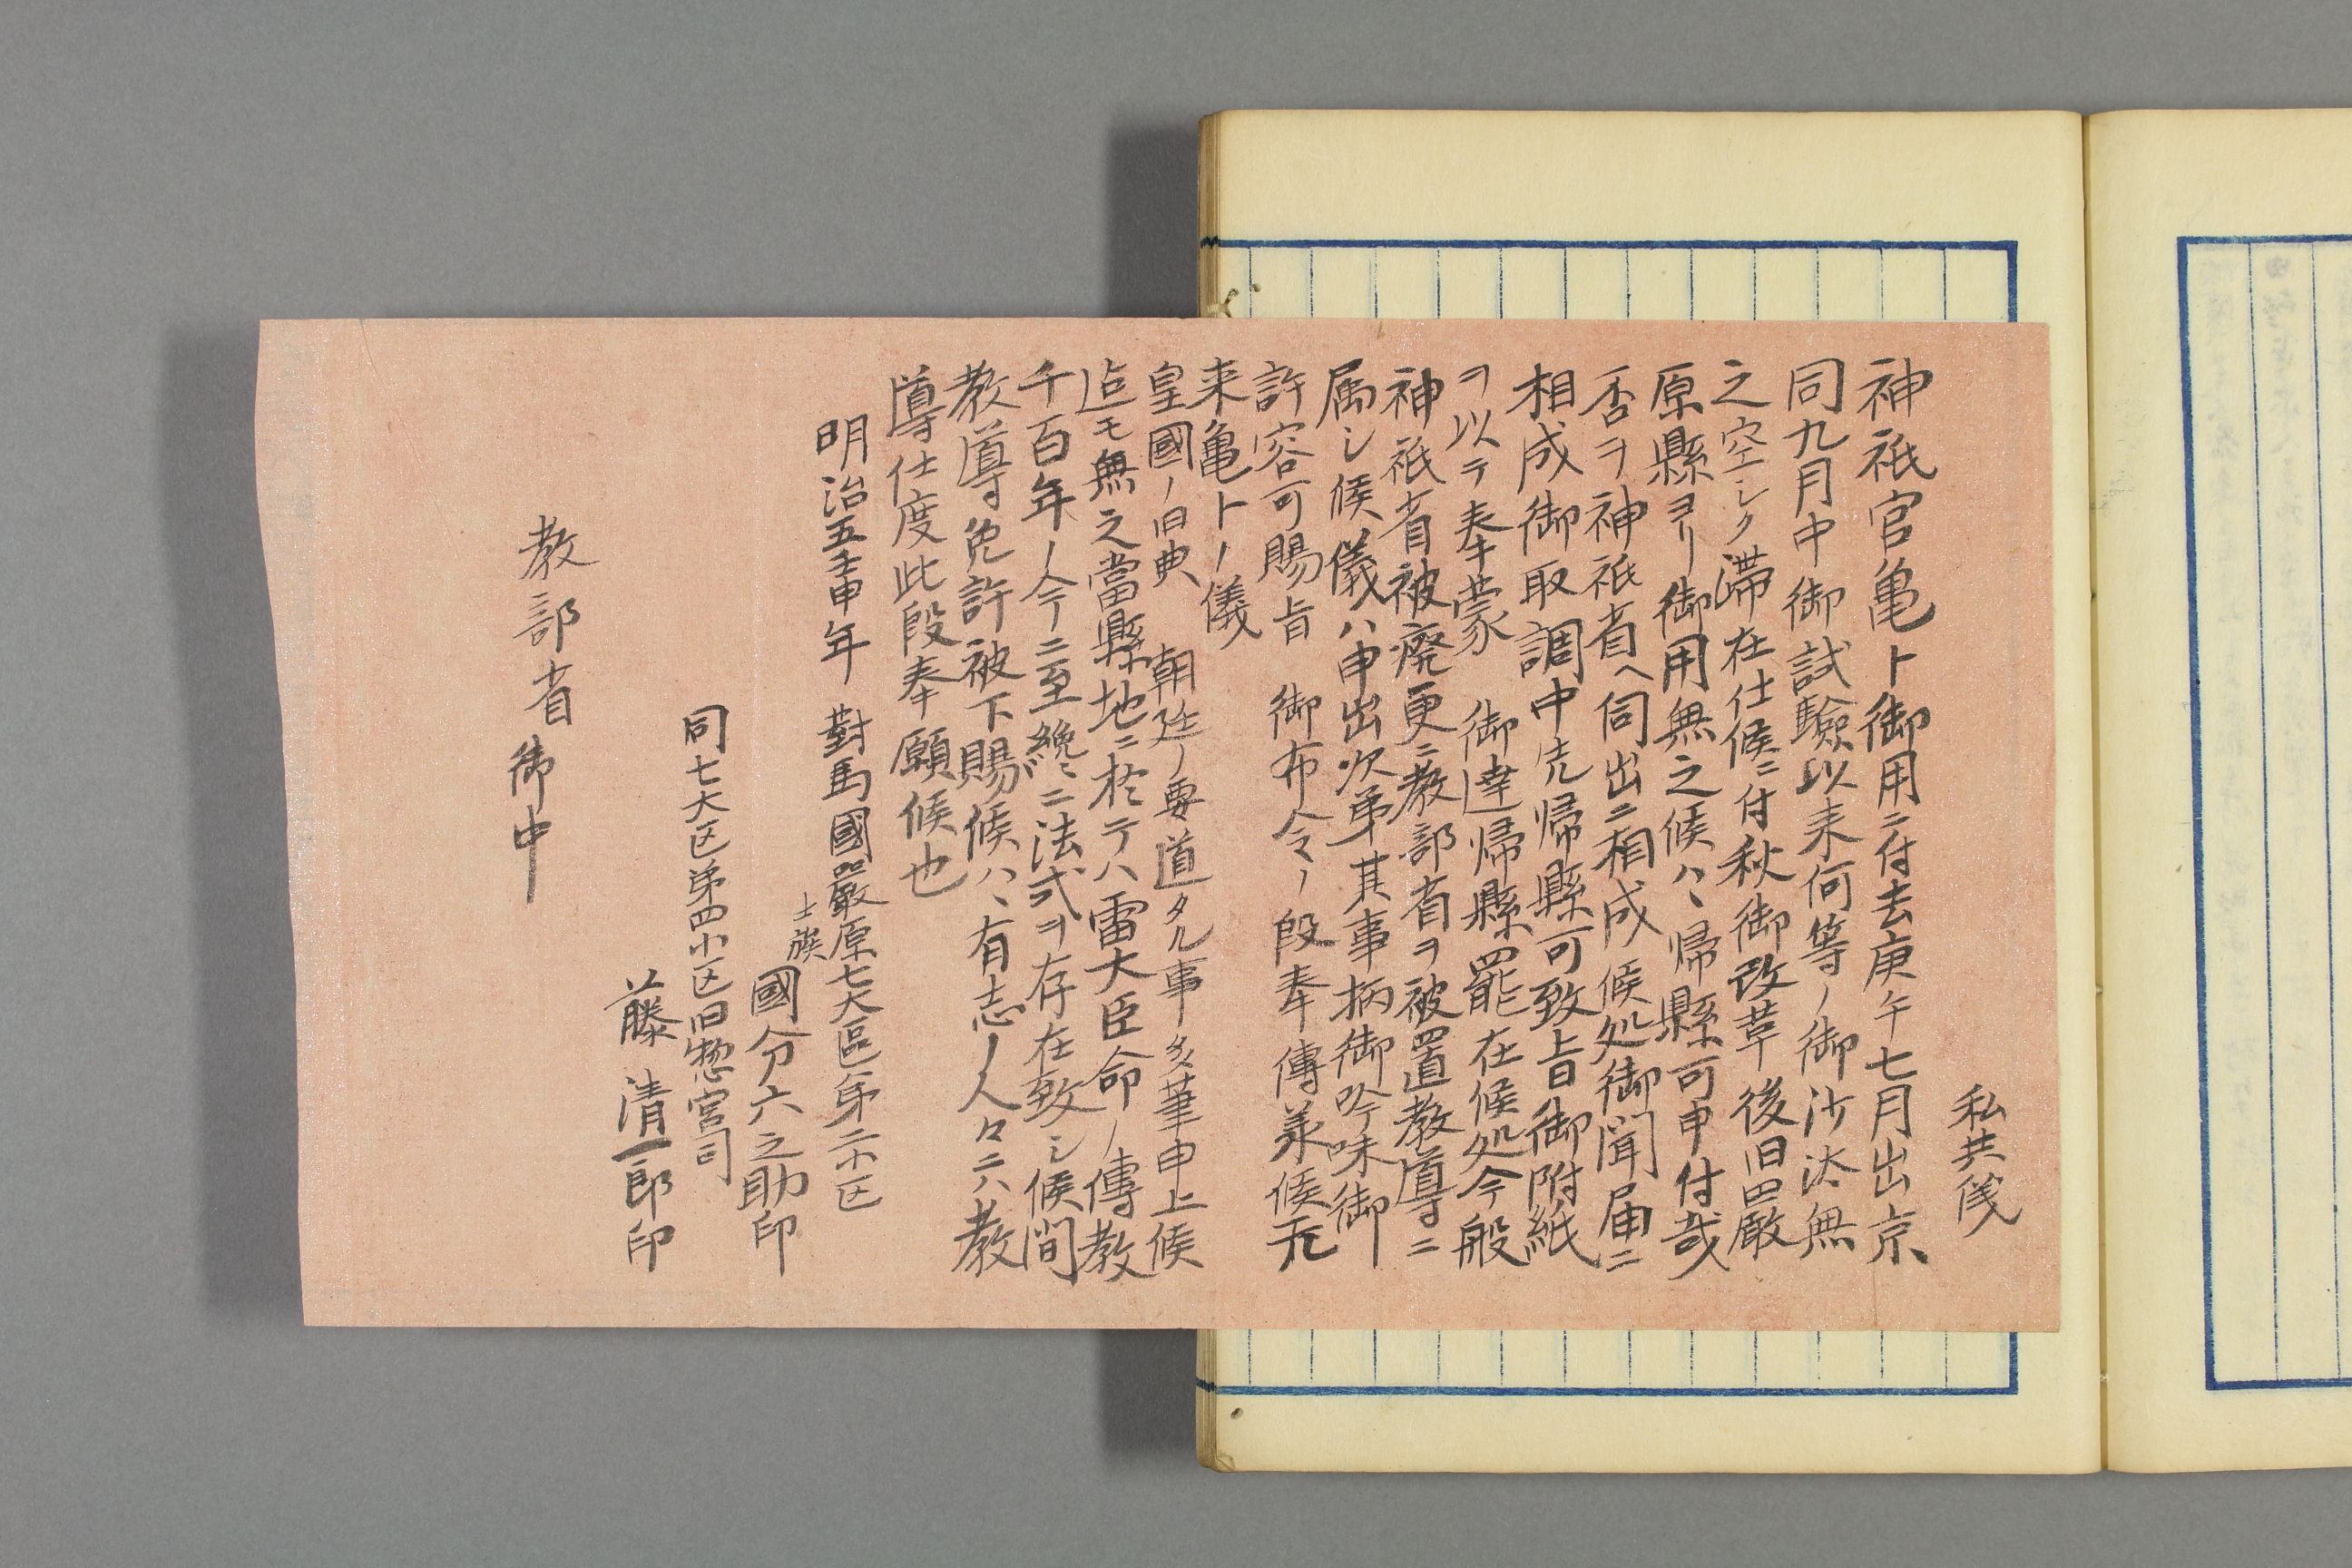 私共儀
神祇官亀卜御用ニ付去庚午七月出京
同九月中御試驗以来何等ノ御沙汰無
之空シク滞在仕候ニ付秋御改革後旧嚴
原縣ヨリ御用無之候ハヽ帰縣可申付哉
否ヲ神祇省ヘ伺出ニ相成候処御聞届ニ
相成御取調中先帰縣可致旨御附紙
ヲ以テ奉蒙　御達帰縣罷在候処今般
神祇省被廃更ニ教部省ヲ被置教導ニ
属シ候儀ハ申出次第其事柄御吟味御
許容可賜旨　御布令ノ段奉傳羕候元
来亀卜ノ儀
皇國ノ旧典　朝廷ノ要道タル事タ〻筆申上候
迠モ無之當縣地ニ於テハ雷大臣命ノ傳教
千百年ノ今ニ至纔ニ法式ヲ存在致シ候間
教導免許被下賜候ハヽ有志ノ人々ニハ教
導仕度此段奉願候也
明治五壬申年　對馬國嚴原七大區第二小区
士族　國分六之助印
同七大区第四小区旧惣宮司
藤清一郎印
教部省御中